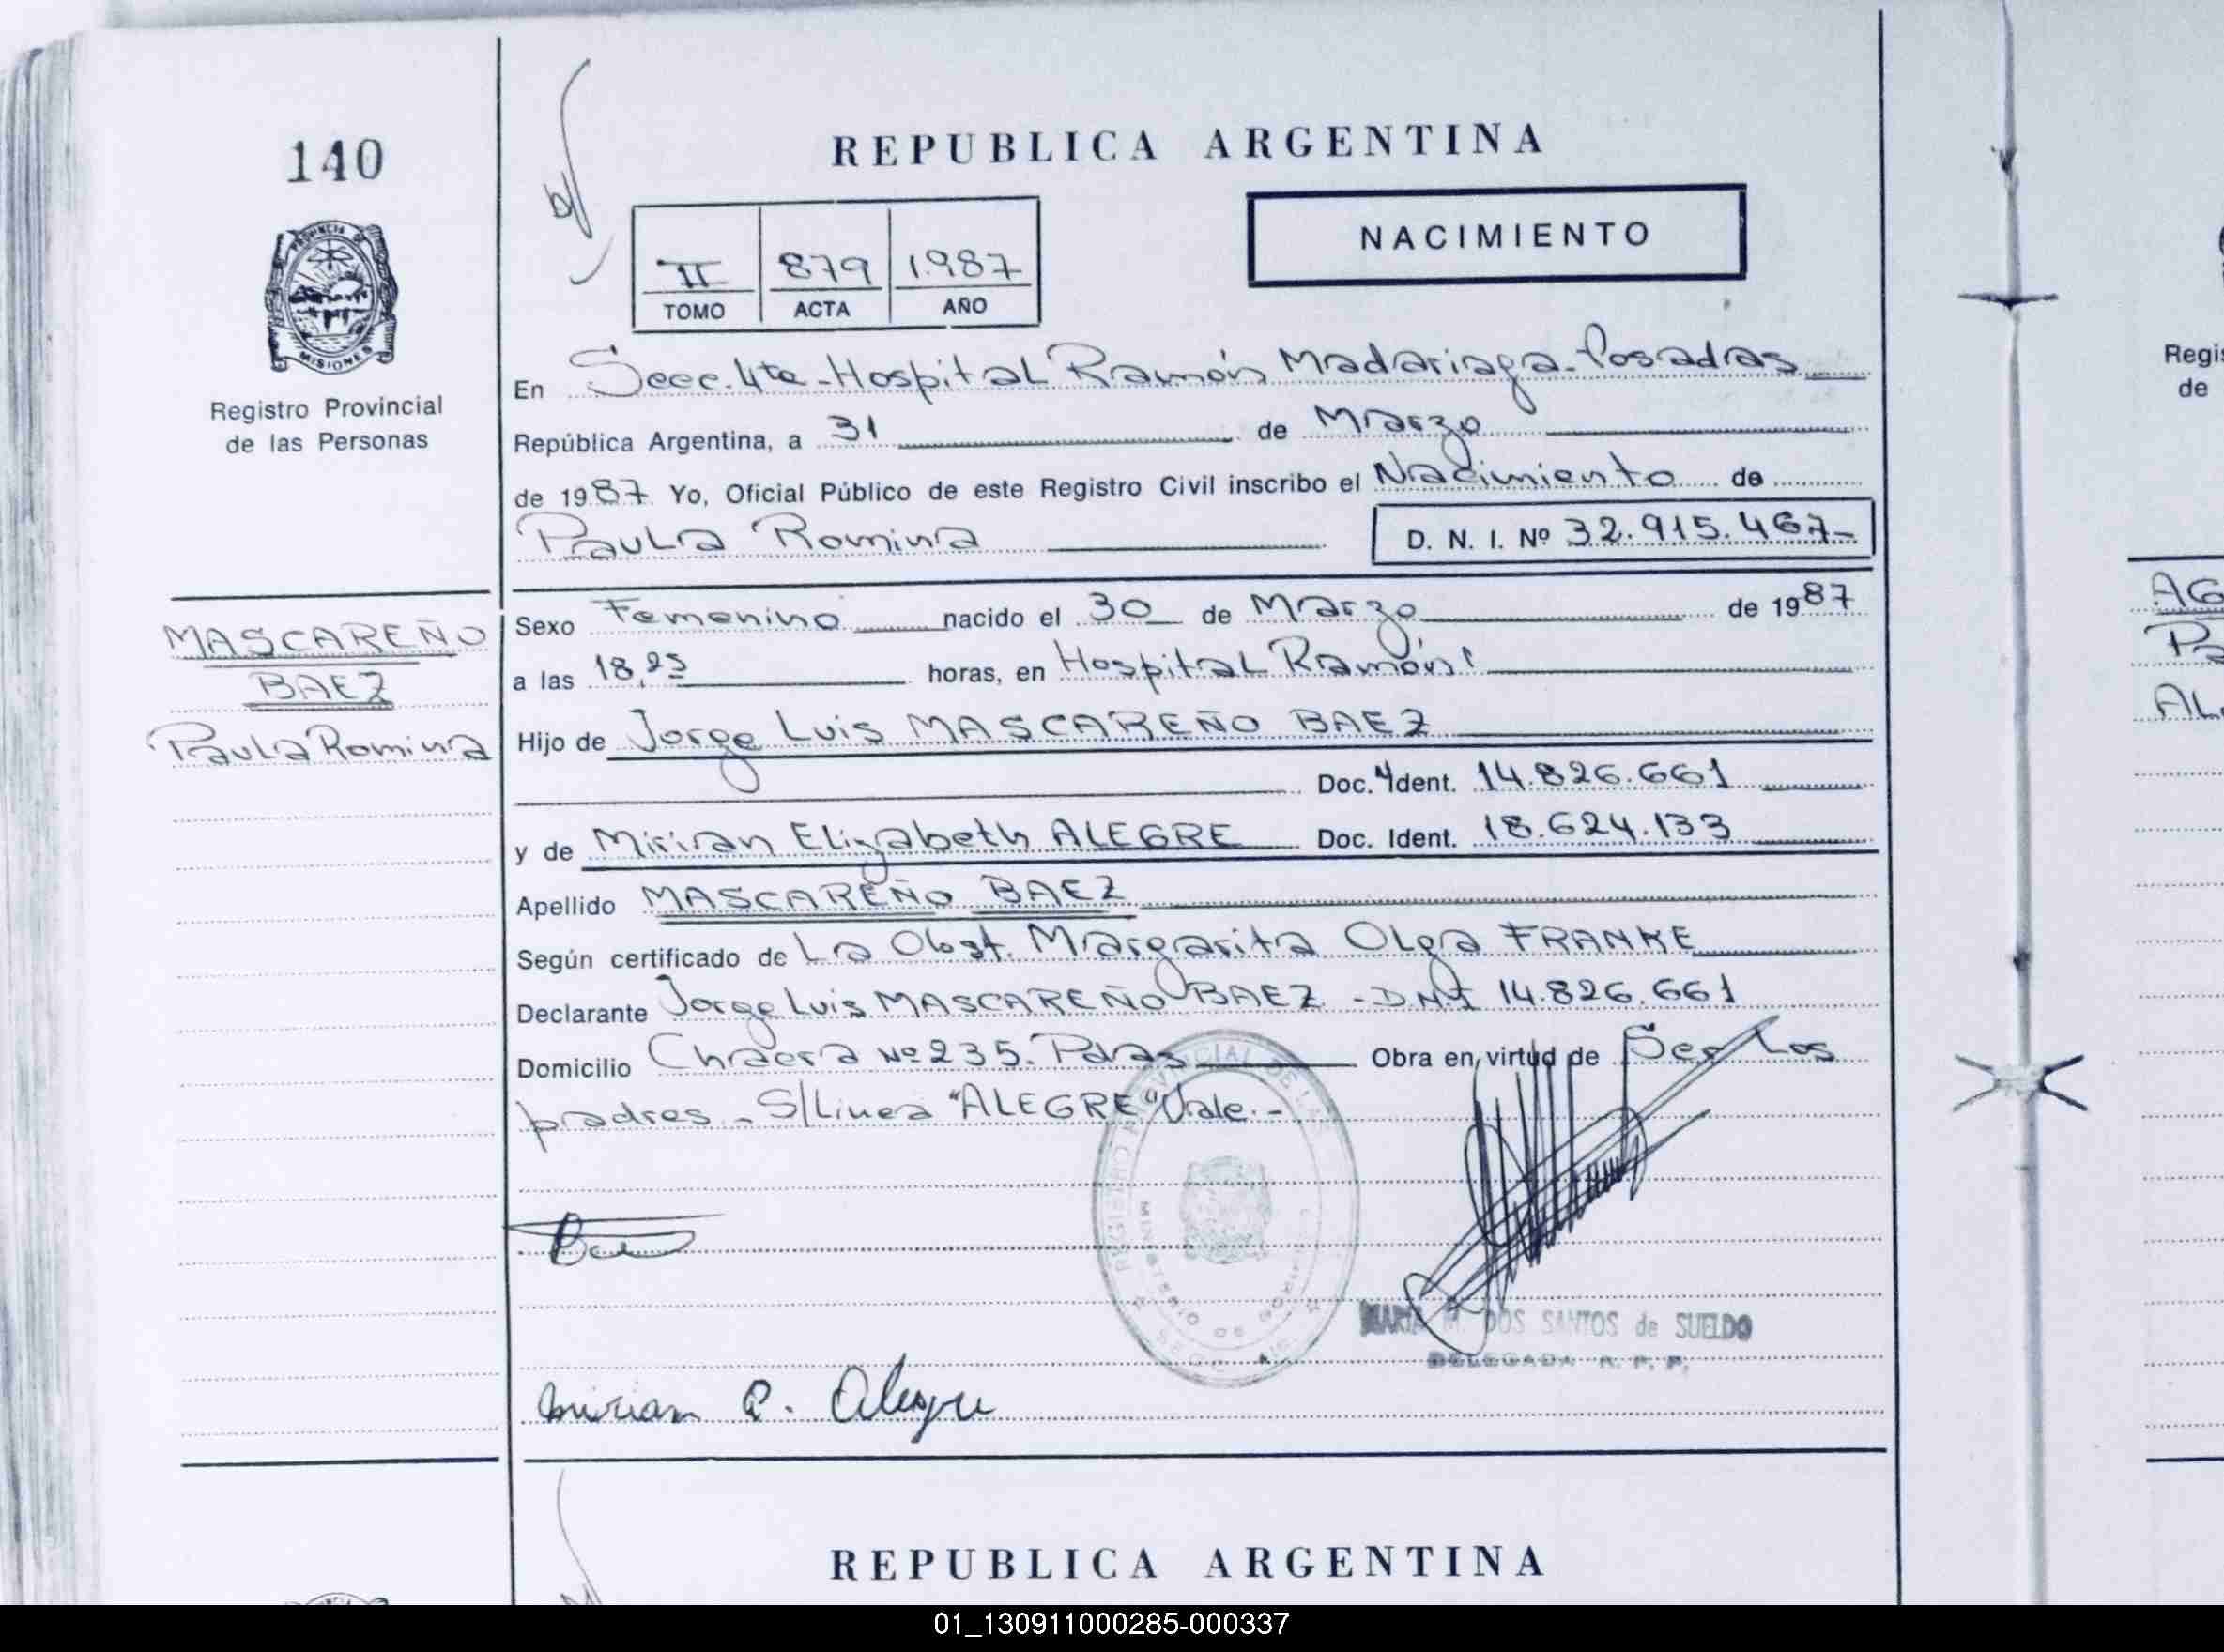 140
PROVINCIA DE
MISIONES
Registro Provincial
de las Personas
MASCAREÑO
BAEZ
Paula Romina
REPUBLICA ARGENTINA
II 879 1.987
TOMO ACTA AÑO
NACIMIENTO
En Secc. 4ta - Hospital Ramón Madariaga - Posadas
República Argentina, a 31 de Marzo
de 1987 Yo, Oficial Público de este Registro Civil inscribo el Nacimiento de
Paula Romina D. N. I. Nº 32.915.467-
Sexo Femenino nacido el 30 de Marzo de 1987
a las 18,25 horas, en Hospital Ramón
Hijo de Jorge Luis MASCAREÑO BAEZ
Doc. Ident. 14.826.661
y de Mirian Elizabeth ALEGRE Doc. Ident. 18.624.133
Apellido MASCAREÑO BAEZ
Según certificado de La Obst. Margarita Olga FRANKE
Declarante Jorge Luis MASCAREÑO BAEZ - D.N.I 14.826.661
Domicilio Chacra Nº 235. Pdas Obra en virtud de Ser los
padres - S/Linea "ALEGRE" Vale.-
REGISTRO PROVINCIAL DE LAS
MINISTERIO DE GOBIERNO
MARIA M. DOS SANTOS de SUELDO
DELEGADA R. P. P.
Miriam E. Alegre
REPUBLICA ARGENTINA
Regis
de
AG
Pa
AL
01_130911000285-000337